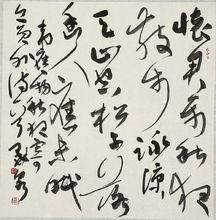 懷君屬秋夜
散步詠涼
天山空松子落
幽人應未眠
韋應物秋夜寄
丘員外詩